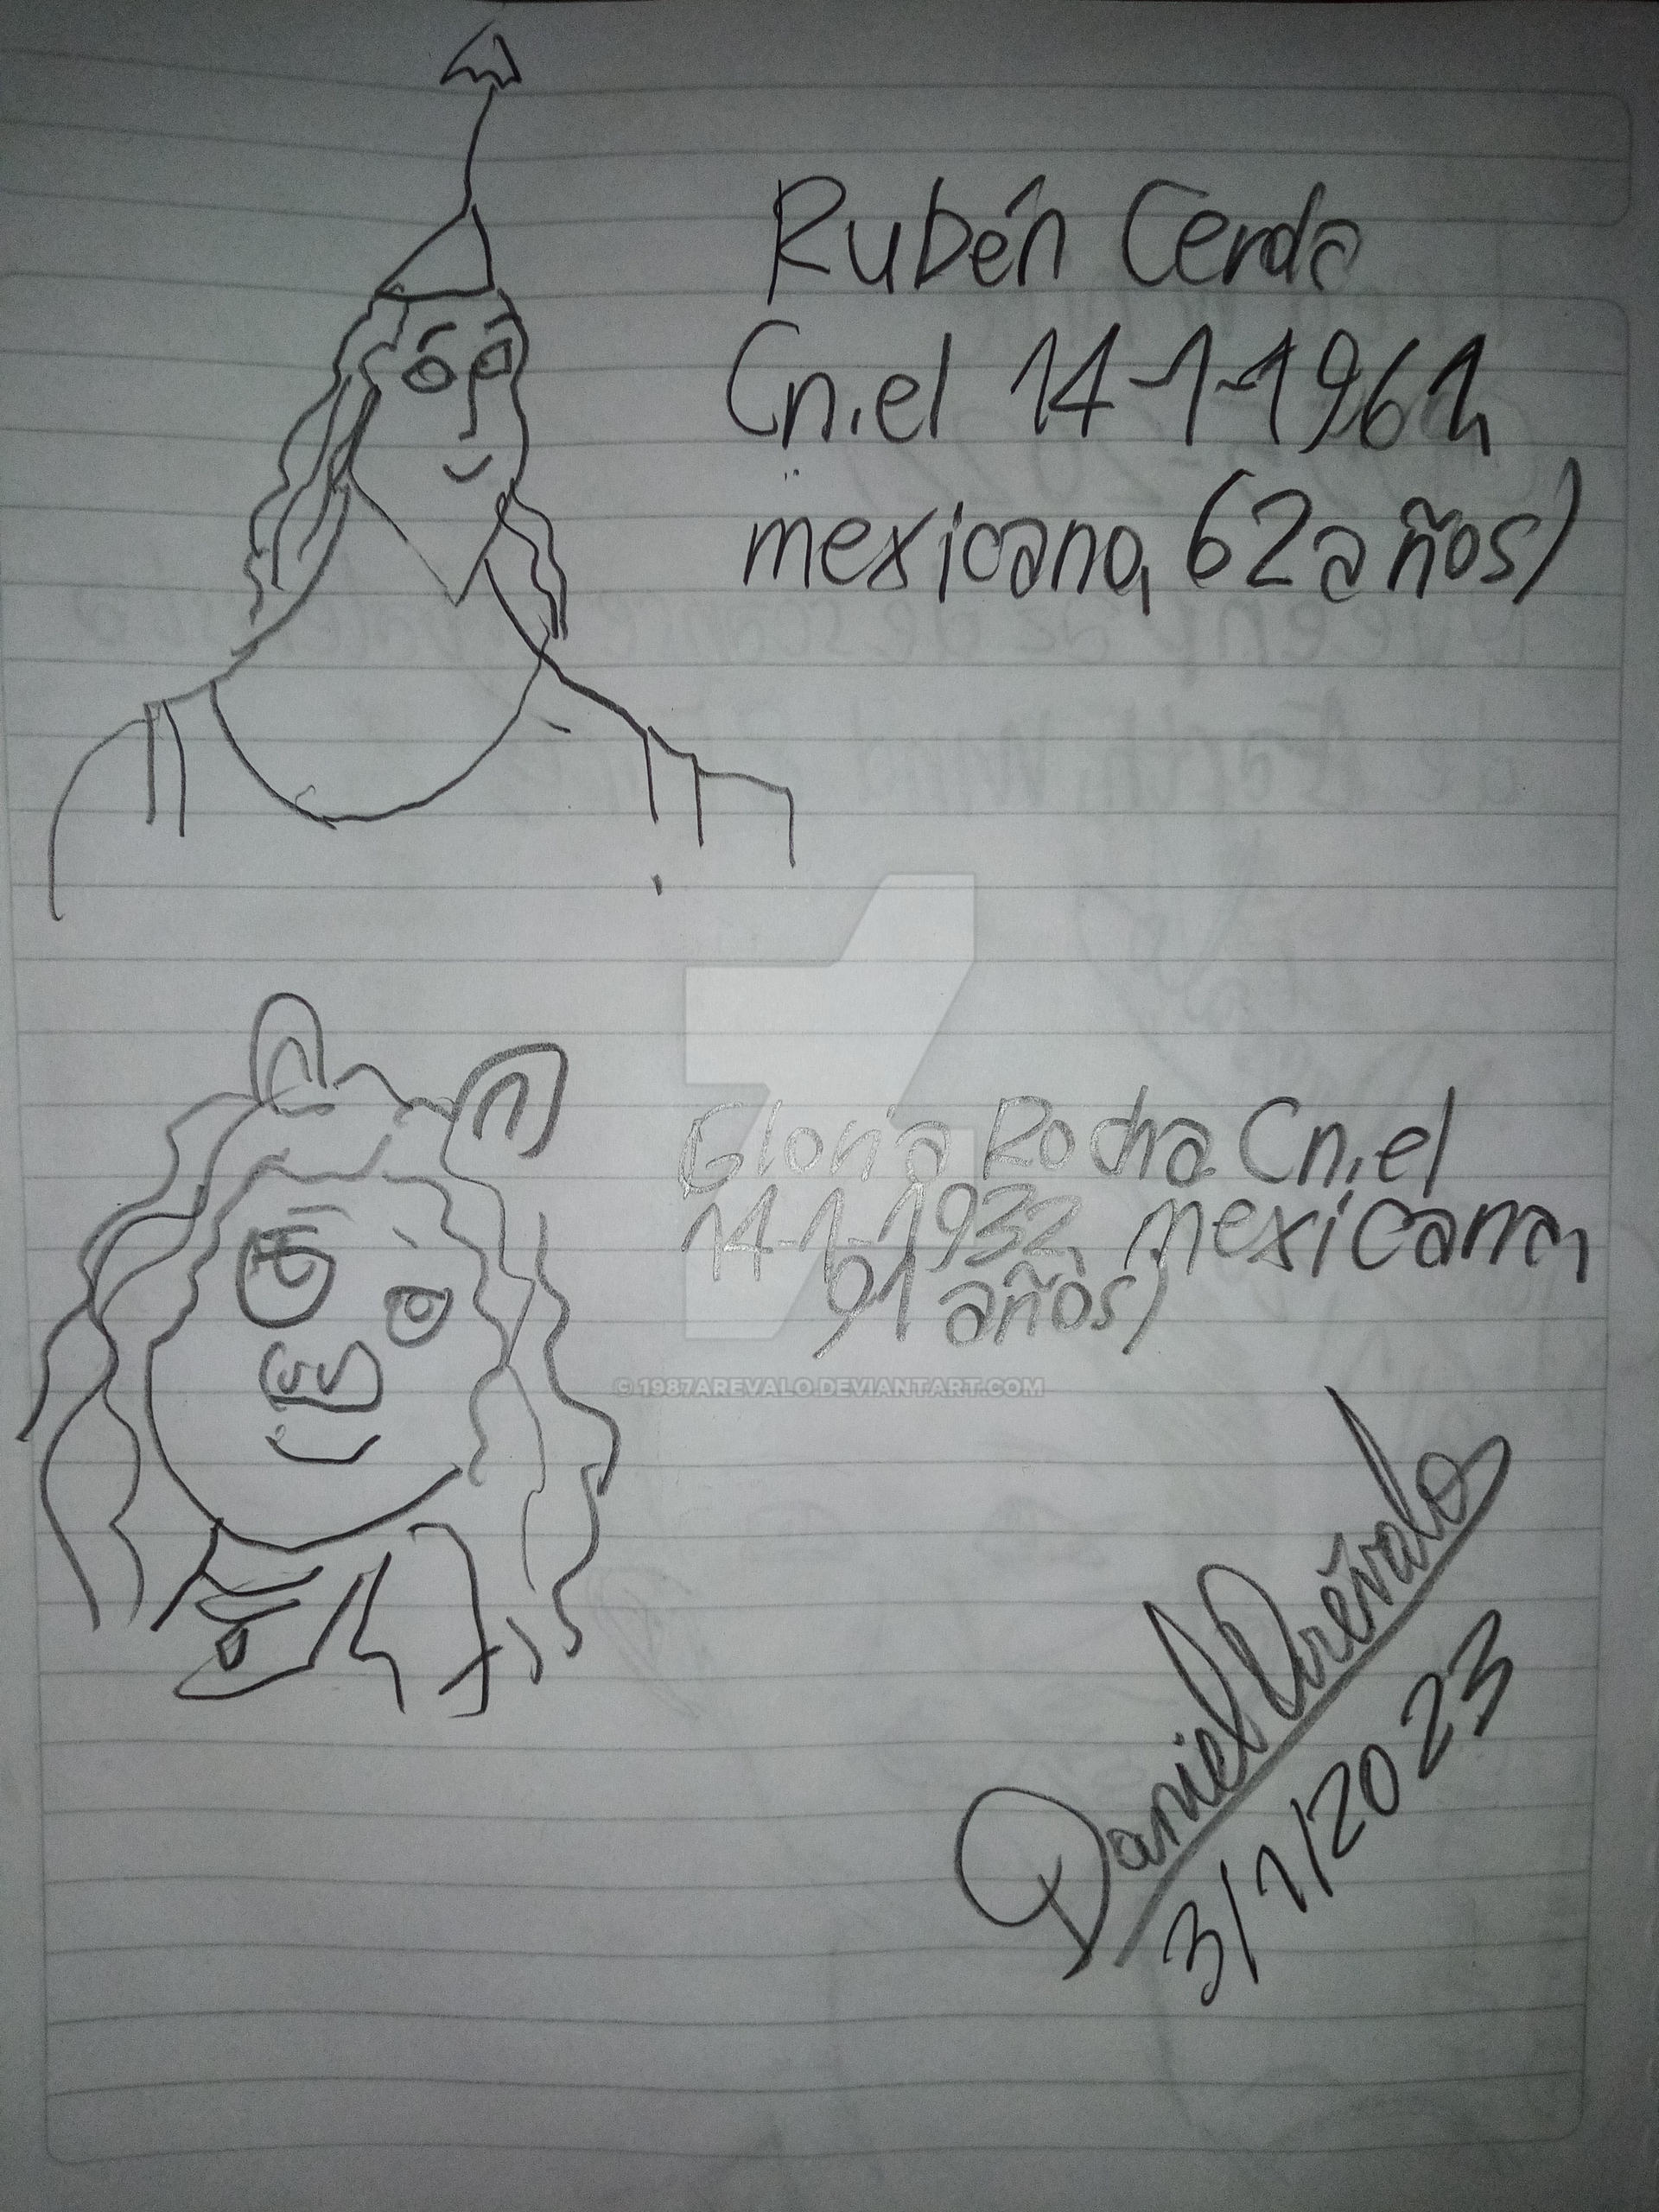 Rubén Cerda
(n.el 14-1-1961,
mexicano, 62 años)
Gloria Rocha (n.el
14-1-1932, mexicana,
91 años)
© 1987AREVALO.DEVIANTART.COM
Daniel Arévalo
3/1/2023